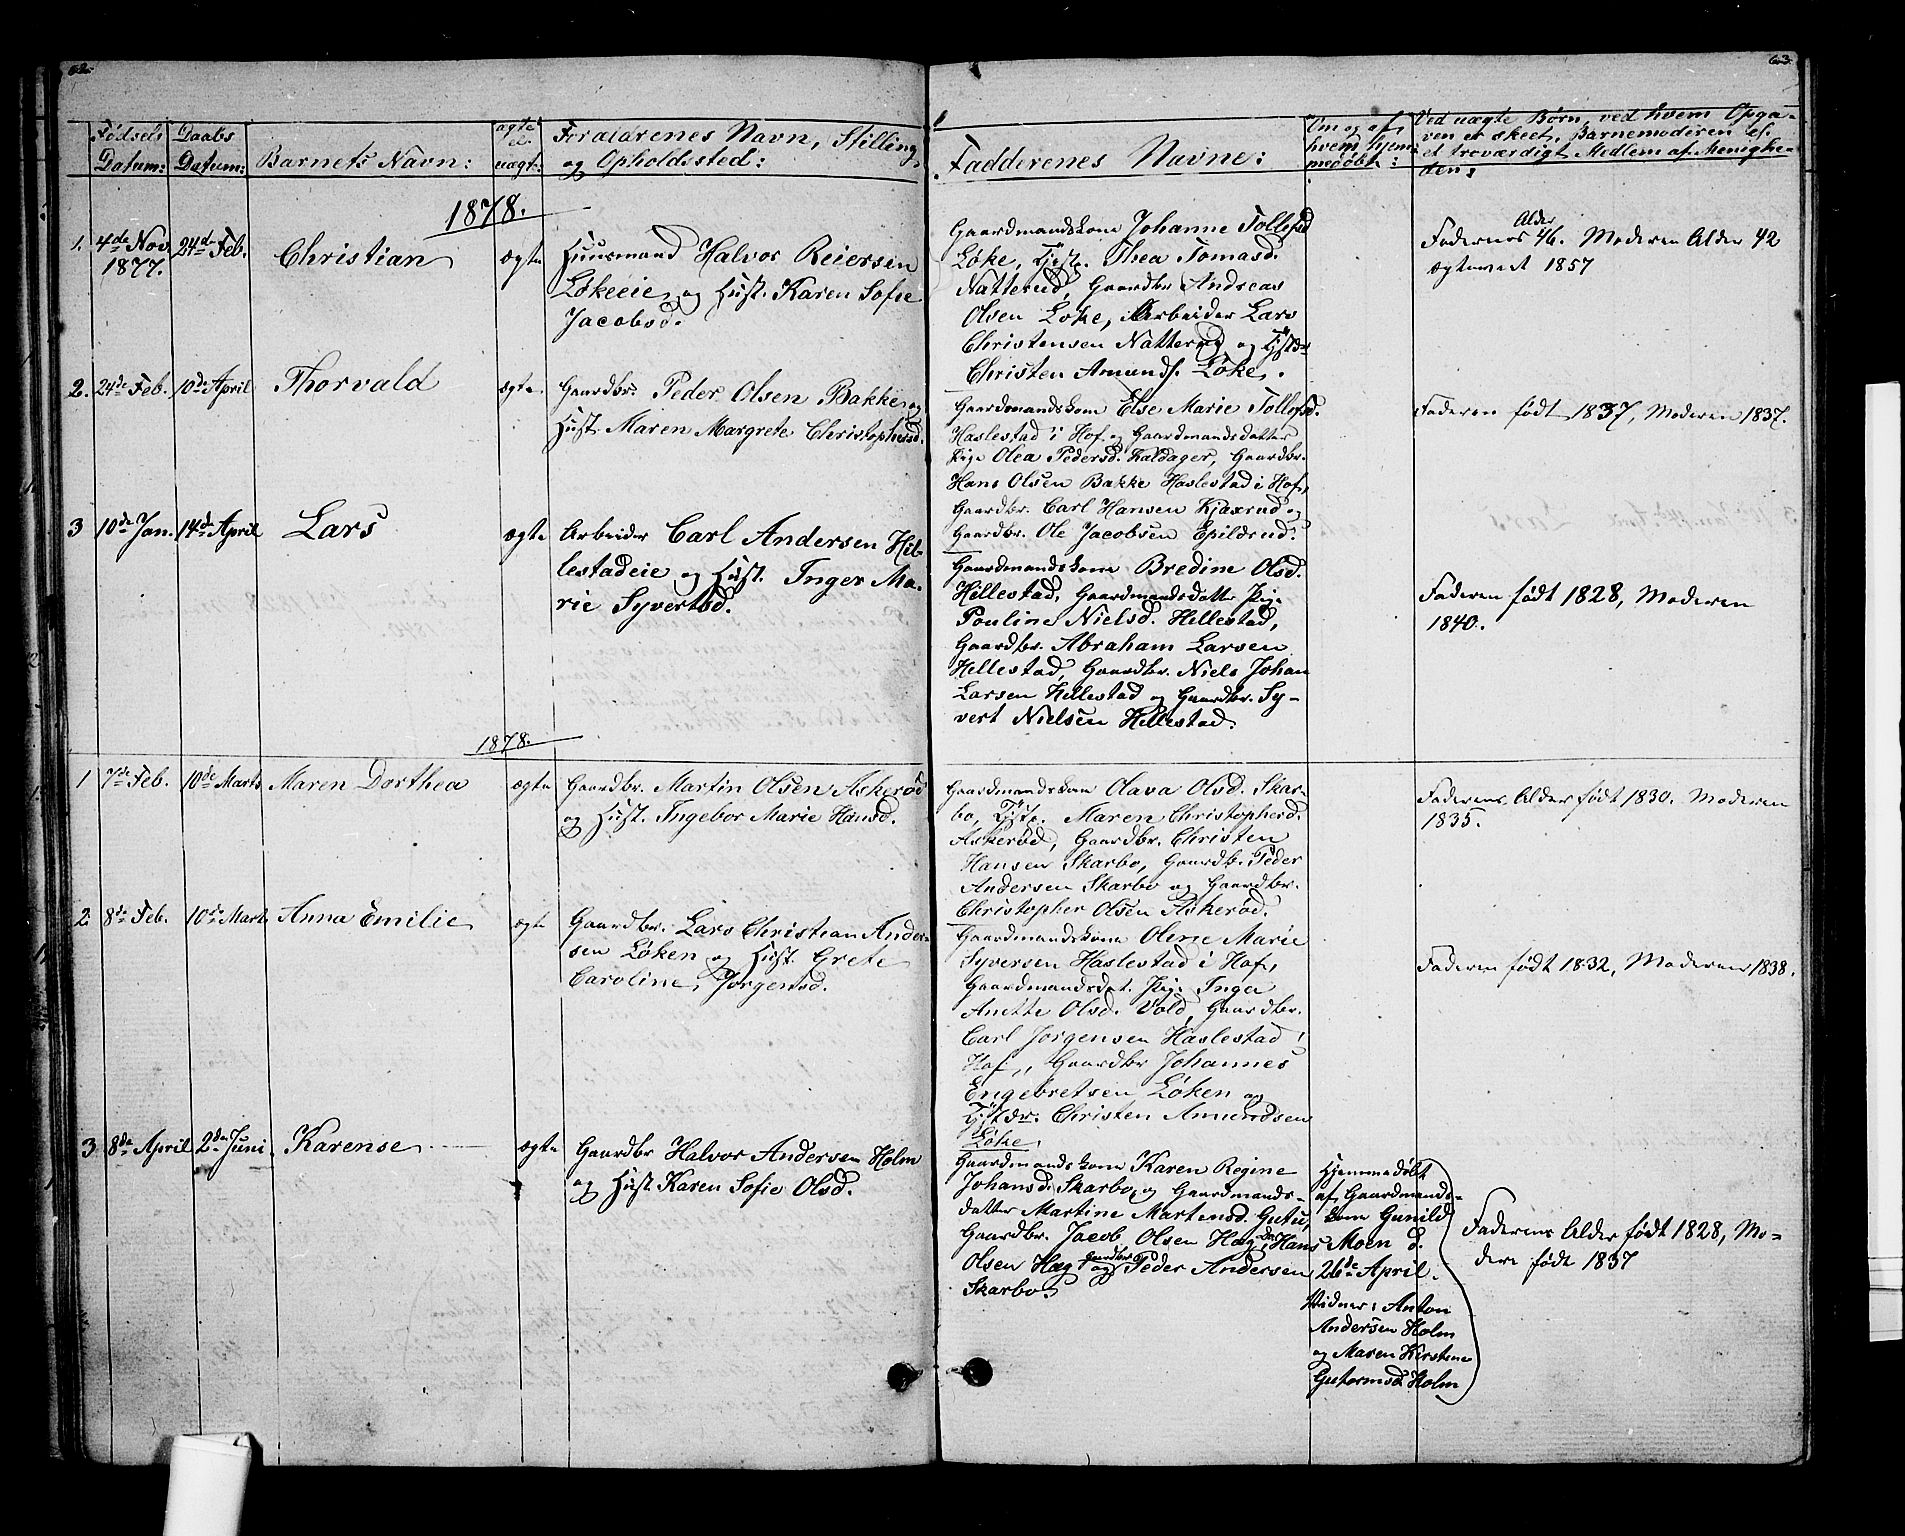 62.
63.
Fødsels Datum:
Daabs Datum:
Barnets Navn:
ægte el. uægte:
Forældrenes Navn, Stilling
og Opholdssted:
Fadderenes Navne:
Om og af hvem hjem- medøbt:
Ved uægte Børn, ved hvem Opga-
ven er skeet, Barnemoderen el.
et troværdigt Medlem af Menighe-
den:
1878.
1. 4de Nov. 1877. 24de Feb. Christian ægte
Huusmand Halvor Reiersen
Løkeeie og Hust. Karen Sofie
Jacobsd.
Gaardmandskone Johanne Tollefsd
Løke, Tjeste. Thea Tomasd.
Natterud, Gaardbr Andreas
Olsen Løke, Arbeider Lars
Christensen Natterud og Tjstdr
Christen Amunds. Løke.
Alder
Faderens 46. Moderen Alder 42
ægteviet 1857
2. 24de Feb. 10de April Thorvald ægte.
Gaardbr. Peder Olsen Bakke og
Hust. Maren Margrete Christophersd.
Gaardmandskone Else Marie Tollefsd.
Haslestad i Hof og Gaardmandsdatter
Pige Olea Pedersd. Kaldager, Gaardbr.
Hans Olsen Bakke Haslestad i Hof,
Gaardbr. Carl Hansen Kjaxrud og
Gaardbr. Ole Jacobsen Epildrud.
Faderen født 1837, Moderen 1837.
3 10de Jan. 14de April Lars ægte
Arbeider Carl Andersen Hil-
lestadeie og Hust. Inger Ma-
rie Syvertsd.
Gaardmandskone Bredine Olsd.
Hillestad, Gaardmandsdatter Pige
Pouline Nielsd. Hellestad,
Gaardbr. Abraham Larsen
Hellestad, Gaardbr. Niels Johan
Larsen Hellestad og Gaardbr. Sy-
vert Nielsen Hellestad.
Faderen født 1828, Moderen
1840.
1878.
1 7de Feb. 10de Marts Maren Dorthea ægte
Gaardbr. Martin Olsen Askerød
og Hust. Ingebor Marie Hansd.
Gaardmandskone Olava Olsd. Skar-
bo, Tjste. Maren Christophersd.
Askerød, Gaardbr. Christen
Hansen Skarbo, Gaardb. Peder
Andersen Skarbo og Gaardbr.
Christopher Olsen Askerød.
Faderens Alder født 1830. Moderen
1835.
2. 8de Feb. 10de Mart. Anna Emilie ægte
Gaardbr. Lars Christian Ander-
sen Løken og Hust. Grete
Caroline Jørgensd.
Gaardmandskone Olene Marie
Syversen Haslestad i Hof,
Gaardmandsdat. Pige Inger
Anette Olsd. Vold, Gaardbr.
Carl Jørgensen Haslestad i
Hof, Gaardbr Johannes
Engebretsen Løken og
Tjstdr. Christen Amundsen
Løke.
Faderen født 1832, Moderen 1838.
3 8de April 2de Juni Karense ægte
Gaardbr Halvor Andersen Holm
og Hust. Karen Sofie Olsd.
Gaardmandskone Karen Regine
Johansd. Skarbo og Gaardmands-
datter Martine Martensd. Gutu,
Gaardbr. Jacob Olsen Hæg, Hans
Olsen Hæg og gaardbr Peder Andersen
Skarbo.
Hjemmedøbt
af Gaardmands-
kone Gunild
Moen d.
26de April.
Vidner: Anton
Andersen Holm
og Maren Kirstine
Gutormsd Holm
Faderens Alder født 1828, Mo-
dere født 1837